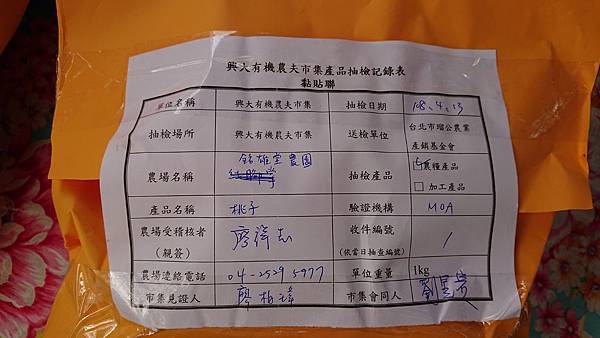 興大有機農夫市集產品抽檢記錄表
黏貼聯
單位名稱 興大有機農夫市集 抽檢日期 108.4.13
抽檢場所 興大有機農夫市集 送檢單位 台北市瑠公農業
產銷基金會
農場名稱 銘雄室農園 抽檢產品 ☑農糧產品
□加工產品
產品名稱 桃子 驗證機構 MOA
農場受稽核者 收件編號 /
(親簽) (依當日抽查編號)
農場連絡電話 04-2529 5977 單位重量 1kg
市集見證人 廖 市集會同人 劉